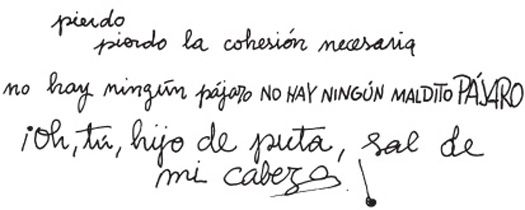 pierdo
pierdo la cohesión necesaria
no hay ningún pájaro NO HAY NINGÚN MALDITO PÁJARO
¡Oh, tú, hijo de puta, sal de
mi cabeza!